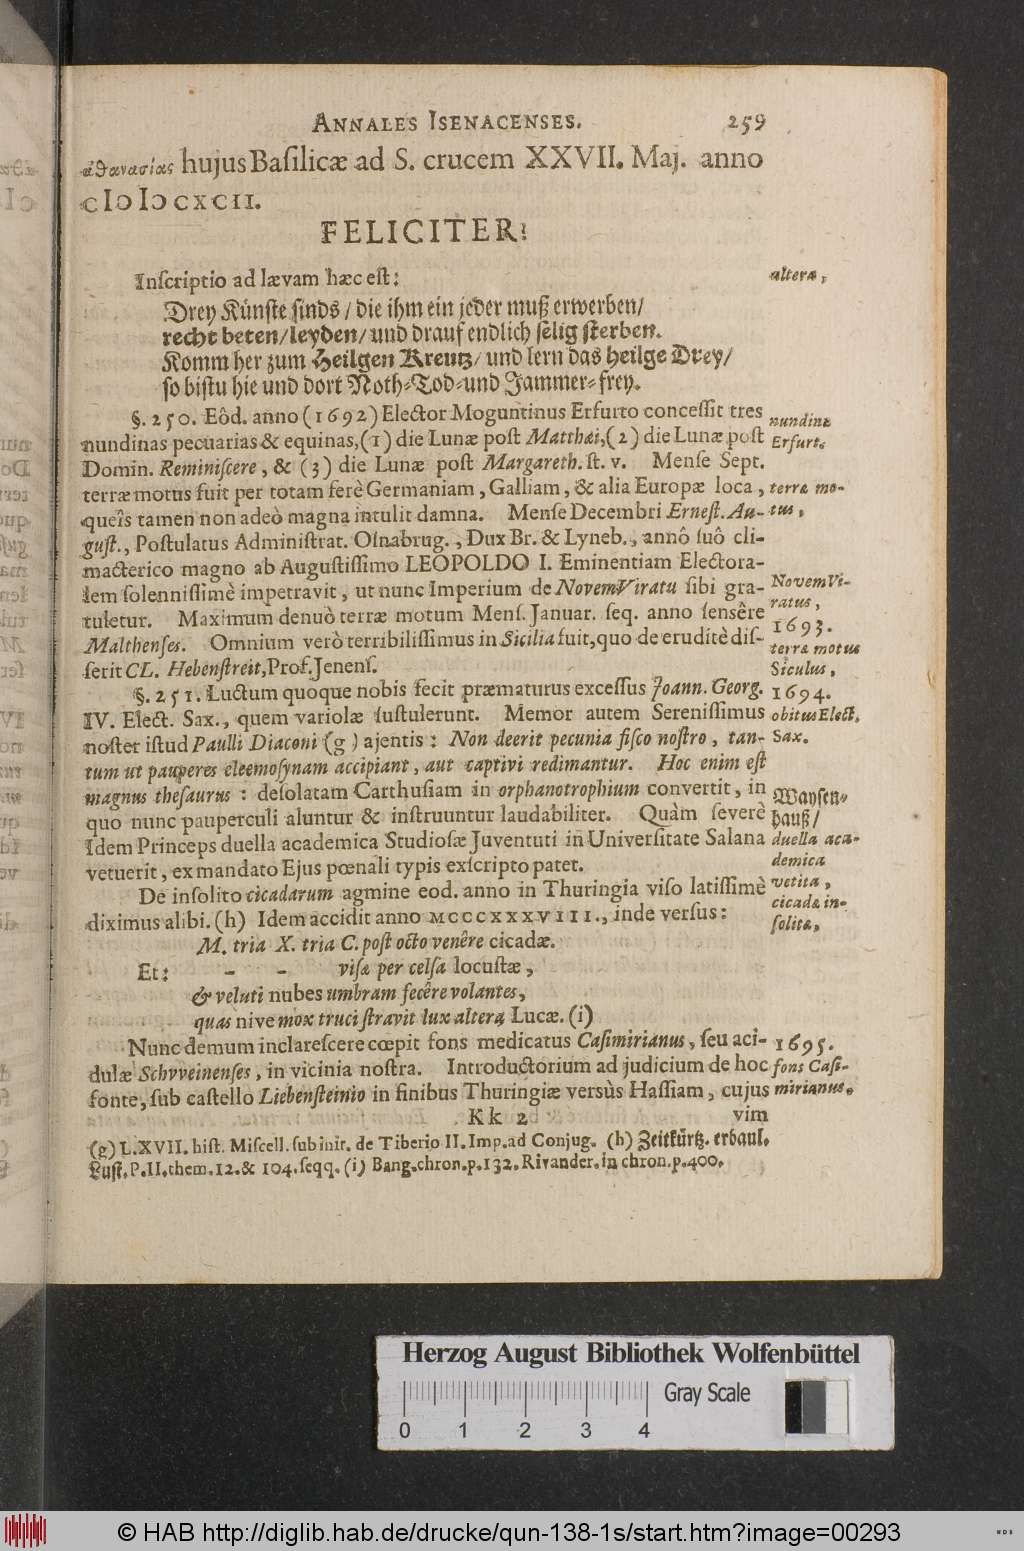 ANNALES ISENACENSES. 259
ἀθανασίας hujus Baſilicæ ad S. crucem XXVII. Maj. anno
cIↄ Iↄ cxcII.
FELICITER!
Inſcriptio ad lævam hæc eſt: altera,
Drey Künſte ſinds / die ihm ein jeder muß erwerben/
recht beten/leyden/ und drauf endlich ſelig ſterben.
Komm her zum Heilgen Kreutz/ und lern das heilge Drey/
ſo biſtu hie und dort Noth-Tod-und Jammer-frey.
§. 250. Eôd. anno (1692) Elector Moguntinus Erfurto conceſſit tres nundinæ
nundinas pecuarias & equinas,(1) die Lunæ poſt Matthæi,(2) die Lunæ poſt Erfurt.
Domin. Reminiſcere, & (3) die Lunæ poſt Margareth. ſt. v. Menſe Sept.
terræ motus fuit per totam ferè Germaniam, Galliam, & alia Europæ loca, terræ mo-
queîs tamen non adeò magna intulit damna. Menſe Decembri Erneſt. Au- tus,
guſt., Poſtulatus Adminiſtrat. Oſnabrug., Dux Br. & Lyneb., annô ſuô cli-
macterico magno ab Auguſtiſſimo LEOPOLDO I. Eminentiam Electora-
lem ſolenniſſimè impetravit, ut nunc Imperium de NovemViratu ſibi gra- NovemVi-
ratus,
tuletur. Maximum denuò terræ motum Menſ. Januar. ſeq. anno ſensêre 1693.
Malthenſes. Omnium verò terribiliſſimus in Sicilia fuit, quo de eruditè diſ- terræ motus
ſerit CL. Hebenſtreit, Prof. Jenenſ. Siculus,
§. 251. Luctum quoque nobis fecit præmaturus exceſſus Joann. Georg. 1694.
IV. Elect. Sax., quem variolæ ſuſtulerunt. Memor autem Sereniſſimus obitus Elect.
noſter iſtud Paulli Diaconi (g) ajentis: Non deerit pecunia fiſco noſtro, tan- Sax.
tum ut pauperes eleemoſynam accipiant, aut captivi redimantur. Hoc enim eſt
magnus theſaurus: deſolatam Carthuſiam in orphanotrophium convertit, in Wayſen-
quo nunc pauperculi aluntur & inſtruuntur laudabiliter. Quàm ſeverè hauß/
Idem Princeps duella academica Studioſæ Juventuti in Univerſitate Salana duella aca-
demica
vetuerit, ex mandato Ejus pœnali typis exſcripto patet.
De inſolito cicadarum agmine eod. anno in Thuringia viſo latiſſimè vetita,
cicadæ in-
diximus alibi. (h) Idem accidit anno MCCCXXXVIII., inde verſus: ſolitæ,
M. tria X. tria C. poſt octo venêre cicadæ.
Et: - - viſæ per celſa locuſtæ,
& veluti nubes umbram fecêre volantes,
quas nive mox truci ſtravit lux altera Lucæ. (i)
Nunc demum inclareſcere cœpit fons medicatus Caſimirianus, ſeu aci- 1695.
dulæ Schvveinenſes, in vicinia noſtra. Introductorium ad judicium de hoc fons Caſi-
fonte, ſub caſtello Liebenſteinio in finibus Thuringiæ versùs Haſſiam, cujus mirianus.
Kk 2 vim
(g) L. XVII. hiſt. Miſcell. ſub inir. de Tiberio II. Imp. ad Conjug. (h) Zeitkürtz. erbaul.
Luſt. P. II. them. 12. & 104. ſeqq. (i) Bang. chron. p. 132. Rivander. in chron. p. 400.
Herzog August Bibliothek Wolfenbüttel
Gray Scale
0 1 2 3 4
© HAB http://diglib.hab.de/drucke/qun-138-1s/start.htm?image=00293